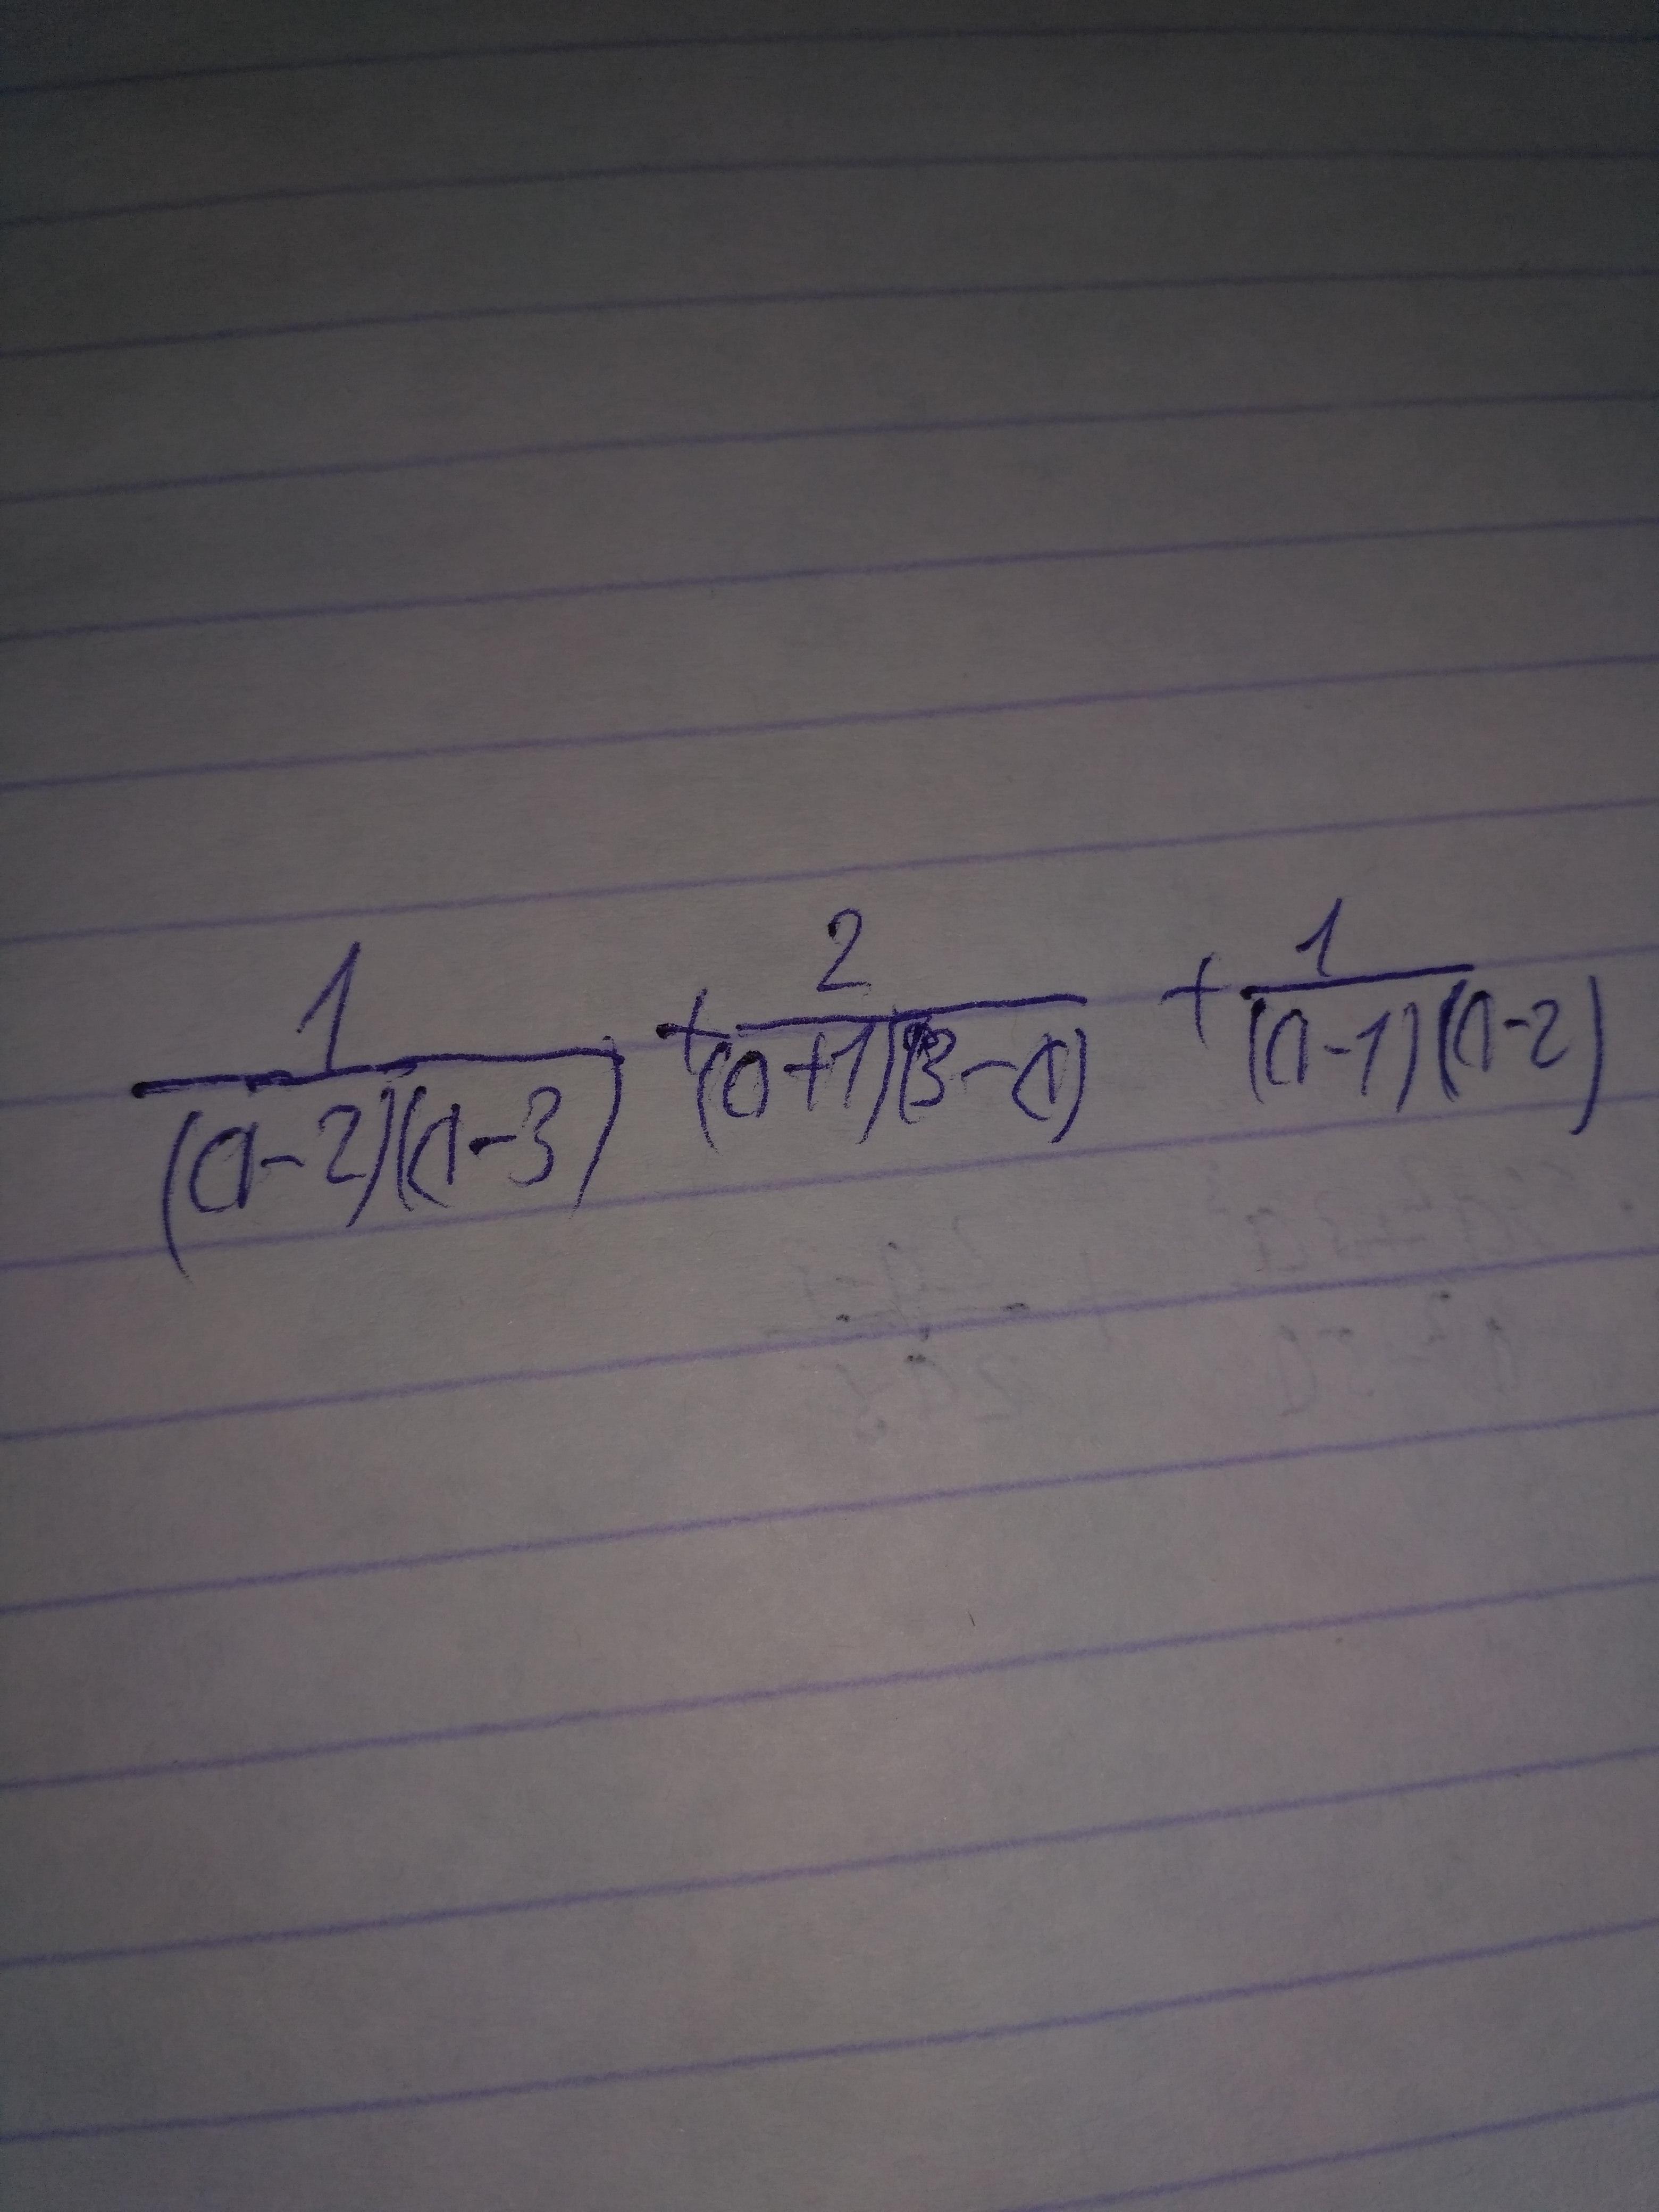 1/((a-2)(a-3)) + 2/((a+1)(3-a)) + 1/((a-1)(a-2))